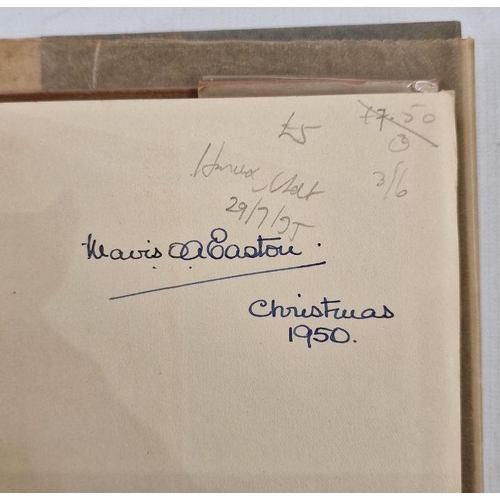 £5
77.50
3
3/6
29/7/95
Mavis A Easton.
Christmas
1950.